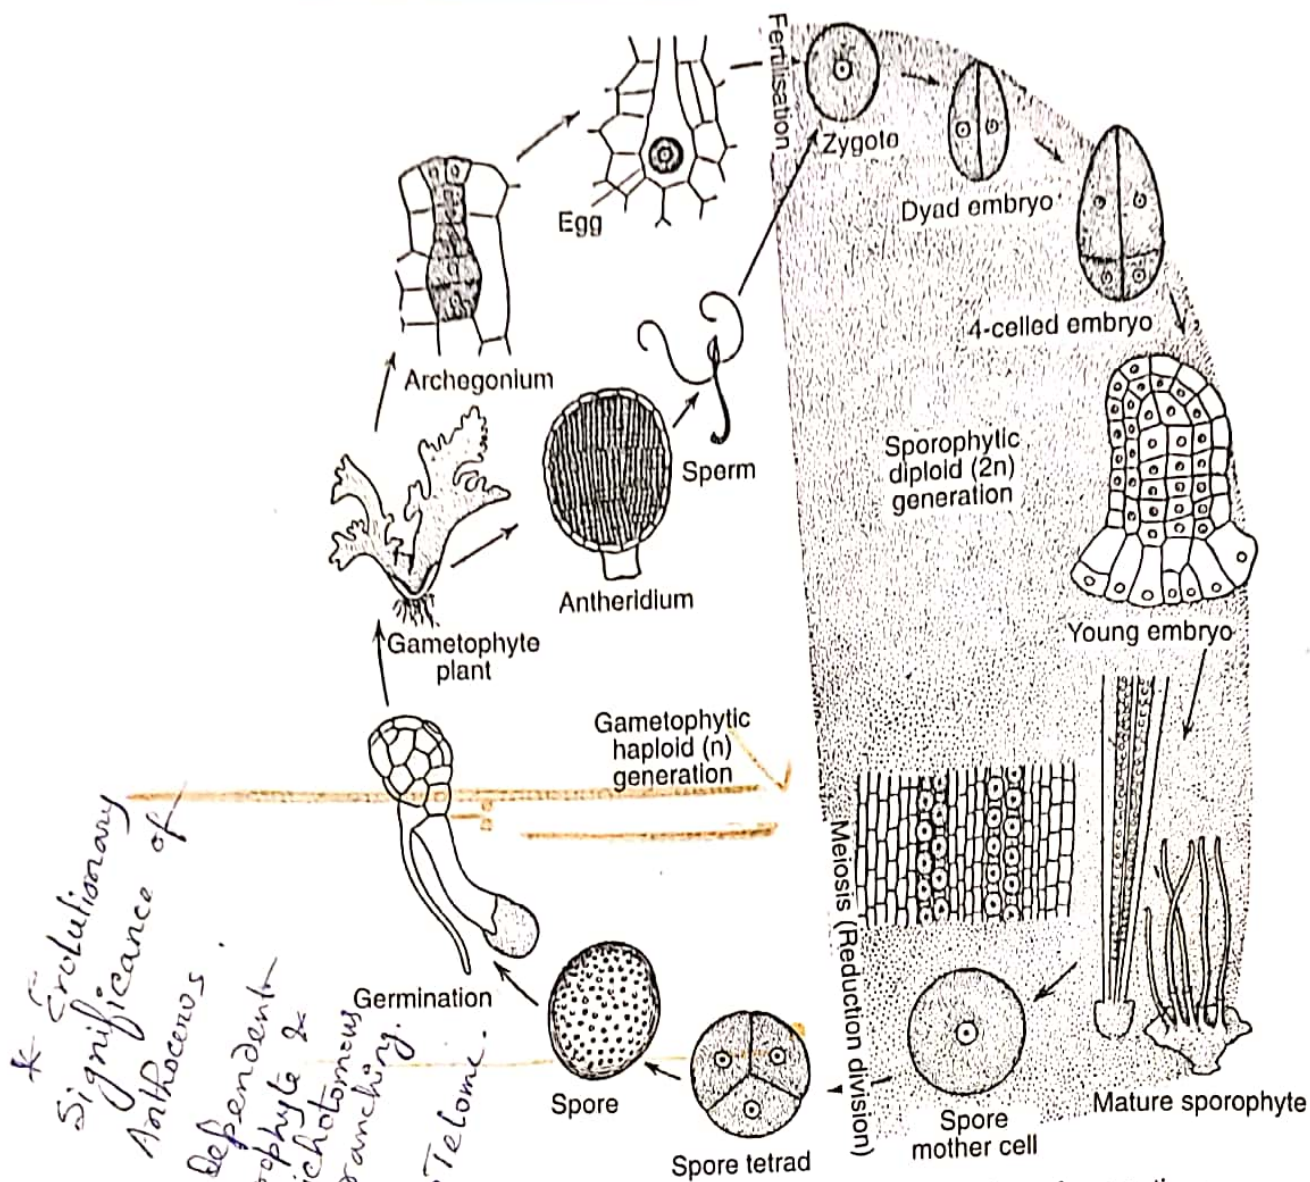 Fertilisation
Zygote
Egg
Dyad embryo
4-celled embryo
Archegonium
Sperm
Sporophytic
diploid (2n)
generation
Antheridium
Young embryo
Gametophyte
plant
Gametophytic
haploid (n)
generation
Meiosis (Reduction division)
Germination
Spore
Spore tetrad
Spore
mother cell
Mature sporophyte
* Evolutionary
Significance of
Anthoceros.
Dependent
ophyte &
ichotomous
ranching.
Telome.